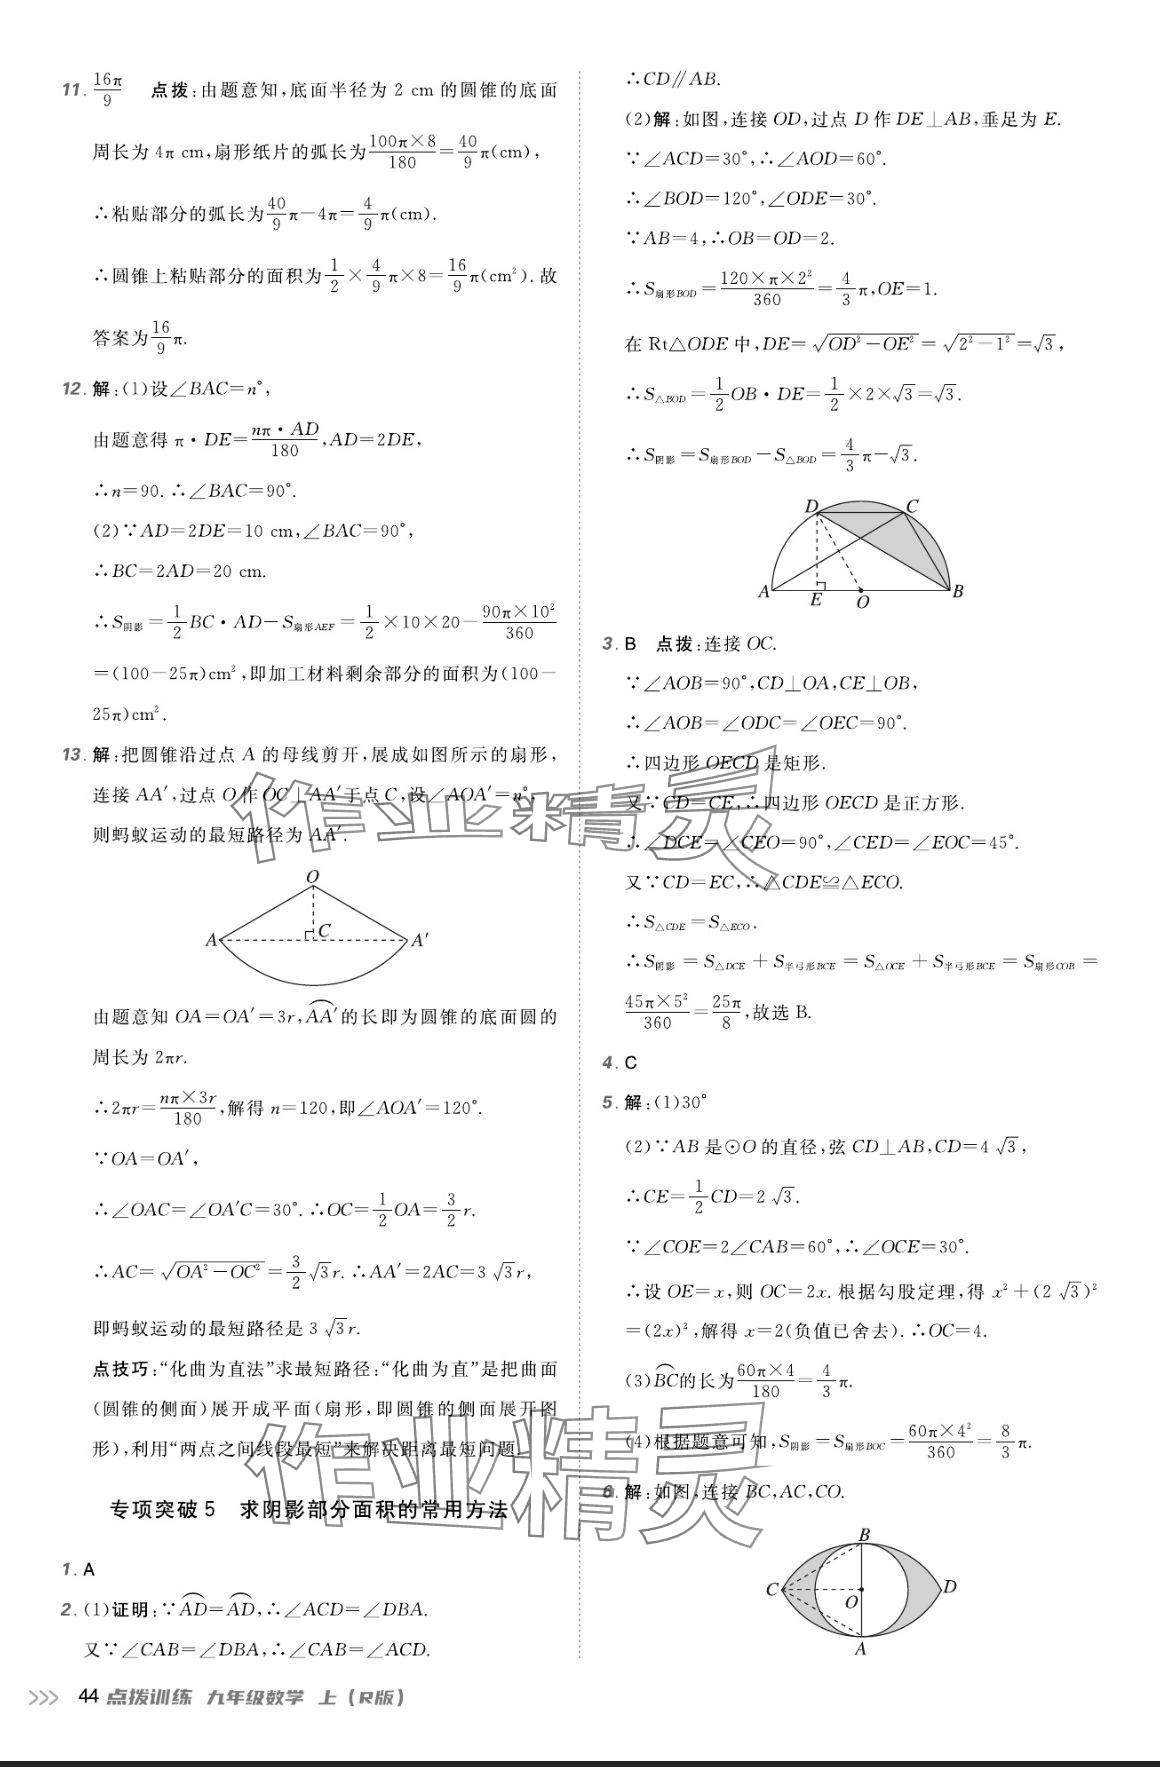 11. 16π/9 点拨:由题意知,底面半径为 2 cm 的圆锥的底面
周长为 4π cm,扇形纸片的弧长为 100π×8/180=40/9π(cm),
∴粘贴部分的弧长为 40/9π-4π=4/9π(cm).
∴圆锥上粘贴部分的面积为 1/2×4/9π×8=16/9π(cm²).故
答案为 16/9π.
12. 解:(1)设∠BAC=n°,
由题意得 π·DE=nπ·AD/180,AD=2DE,
∴n=90.∴∠BAC=90°.
(2)∵AD=2DE=10 cm,∠BAC=90°,
∴BC=2AD=20 cm.
∴S阴影=1/2BC·AD-S扇形AEF=1/2×10×20-90π×10²/360
=(100-25π)cm²,即加工材料剩余部分的面积为(100-
25π)cm².
13. 解:把圆锥沿过点 A 的母线剪开,展成如图所示的扇形,
连接 AA′,过点 O 作 OC⊥AA′于点 C,设∠AOA′=n°,
则蚂蚁运动的最短路径为 AA′.
O
A C A′
由题意知 OA=OA′=3r,AA′⌒的长即为圆锥的底面圆的
周长为 2πr.
∴2πr=nπ×3r/180,解得 n=120,即∠AOA′=120°.
∵OA=OA′,
∴∠OAC=∠OA′C=30°.∴OC=1/2OA=3/2r.
∴AC=√(OA²-OC²)=3/2√3r.∴AA′=2AC=3√3r,
即蚂蚁运动的最短路径是 3√3r.
点技巧:“化曲为直法”求最短路径:“化曲为直”是把曲面
(圆锥的侧面)展开成平面(扇形,即圆锥的侧面展开图
形),利用“两点之间线段最短”来解决距离最短问题.
专项突破5 求阴影部分面积的常用方法
1. A
2. (1)证明:∵AD⌒=AD⌒,∴∠ACD=∠DBA.
又∵∠CAB=∠DBA,∴∠CAB=∠ACD.
∴CD∥AB.
(2)解:如图,连接 OD,过点 D 作 DE⊥AB,垂足为 E.
∵∠ACD=30°,∴∠AOD=60°.
∴∠BOD=120°,∠ODE=30°.
∵AB=4,∴OB=OD=2.
∴S扇形BOD=120×π×2²/360=4/3π,OE=1.
在 Rt△ODE 中,DE=√(OD²-OE²)=√(2²-1²)=√3,
∴S△BOD=1/2OB·DE=1/2×2×√3=√3.
∴S阴影=S扇形BOD-S△BOD=4/3π-√3.
D C
A E O B
3. B 点拨:连接 OC.
∵∠AOB=90°,CD⊥OA,CE⊥OB,
∴∠AOB=∠ODC=∠OEC=90°.
∴四边形 OECD 是矩形.
又∵CD=CE,∴四边形 OECD 是正方形.
∴∠DCE=∠CEO=90°,∠CED=∠EOC=45°.
又∵CD=EC,∴△CDE≌△ECO.
∴S△CDE=S△ECO.
∴S阴影=S△DCE+S半弓形BCE=S△OCE+S半弓形BCE=S扇形COB=
45π×5²/360=25π/8,故选 B.
4. C
5. 解:(1)30°
(2)∵AB 是⊙O 的直径,弦 CD⊥AB,CD=4√3,
∴CE=1/2CD=2√3.
∵∠COE=2∠CAB=60°,∴∠OCE=30°.
∴设 OE=x,则 OC=2x.根据勾股定理,得 x²+(2√3)²
=(2x)²,解得 x=2(负值已舍去).∴OC=4.
(3)BC⌒的长为 60π×4/180=4/3π.
(4)根据题意可知,S阴影=S扇形BOC=60π×4²/360=8/3π.
6. 解:如图,连接 BC,AC,CO.
B
C O D
A
作业精灵
作业精灵
44 点拨训练 九年级数学 上(R版)